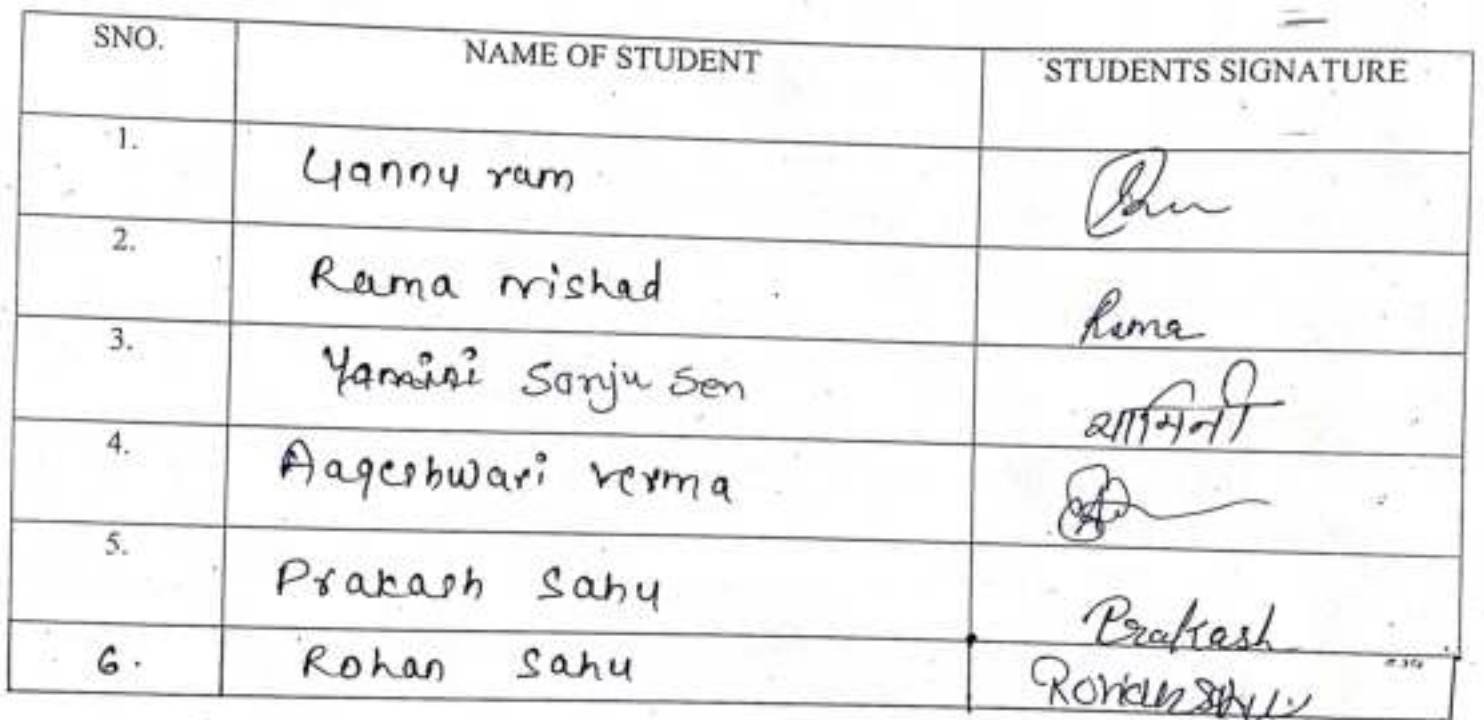 SNO. NAME OF STUDENT STUDENTS SIGNATURE
1. Gannu ram
2. Rama nishad Rama
3. Yamini Sanju Sen यामिनी
4. Aageshwari verma
5. Prakash Sahu Prakash
6. Rohan Sahu Rohan Sahu